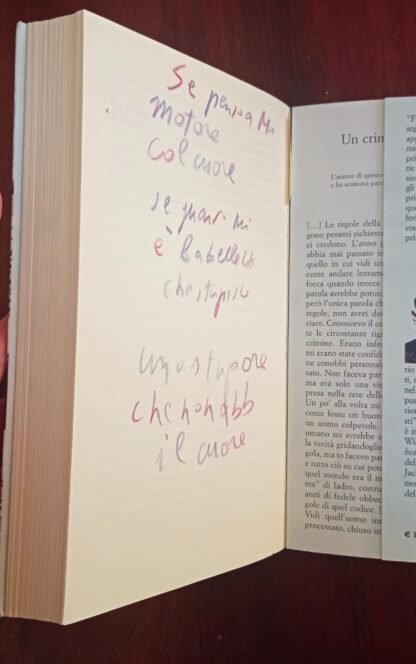 Se pensa Mi
motore
Col cuore
se guar mi
è
che stupisci
uno stupore
che non abb
il cuore
Un crim
L'autore di questo
e ha scontato par
[...] Le regole della
gono pesanti richieste
ci credono. L'anno
abbia mai passato i
quello in cui vidi un
cente andare lentam
forca quando invece
parola avrebbe potut
però l'unica parola ch
regole, non avrei do
ciare. Conoscevo il ce
te le circostanze rig
crimine. Erano info
mi erano state confid
ne conobbi personal
sato. Non faceva par
ma era solo una vit
presa nella rete delle
Un po' alla volta mi
come fosse un buon
un uomo colpevole,
umano mi avrebbe s
la verità gridandoglie
gola, ma io facevo par
e tutto ciò su cui pote
quel mondo era il m
me" di ladro, costru
anni di fedele obbed
gole di quel codice. I
Vidi quell'uomo inn
processato, chiuso in
"F
seg
app
mic
pri
ne
sio
gli
pri
que
fon
coc
pri
rio
ti,
nel
pun
rio
sti"
è in
Wi
bea
del
Jac
mo
del
€ 1